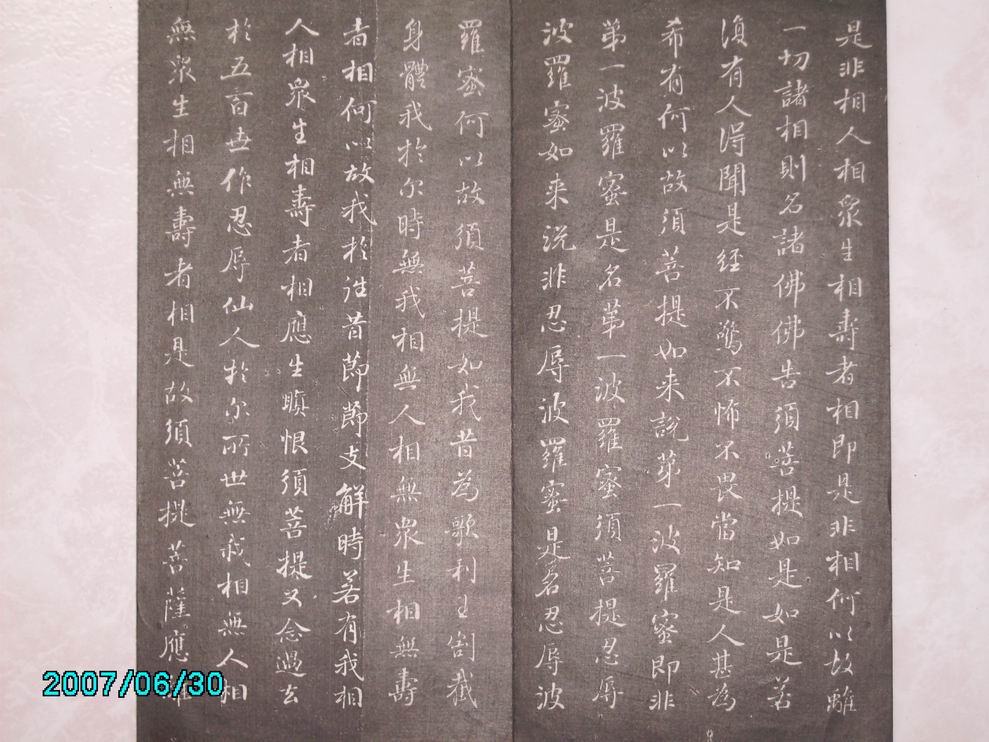 是非相人相衆生相壽者相即是非相何以故離
一切諸相則名諸佛佛告須菩提如是如是若
復有人得聞是經不驚不怖不畏當知是人甚為
希有何以故須菩提如来說苐一波羅蜜即非
苐一波羅蜜是名苐一波羅蜜須菩提忍辱
波羅蜜如来说非忍辱波羅蜜是名忍辱波
羅蜜何以故須菩提如我昔為歌利王割截
身體我於尔時無我相無人相無衆生相無壽
者相何以故我於往昔節節支解時若有我相
人相衆生相壽者相應生瞋恨須菩提又念過去
於五百世作忍辱仙人於尔所世無我相無人相
無衆生相無壽者相是故須菩提菩薩應離
2007/06/30